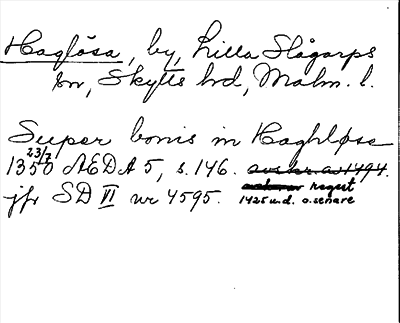 Haglösa, by, Lilla Slågarps
sn, Skytts hd, Malm. l.
Super bonis in Haghløse
23/7
1350 ÆDA 5, s. 146. avskr. av 1494.
jfr SD VI nr 4595. regest
1425 u.d. o. senare